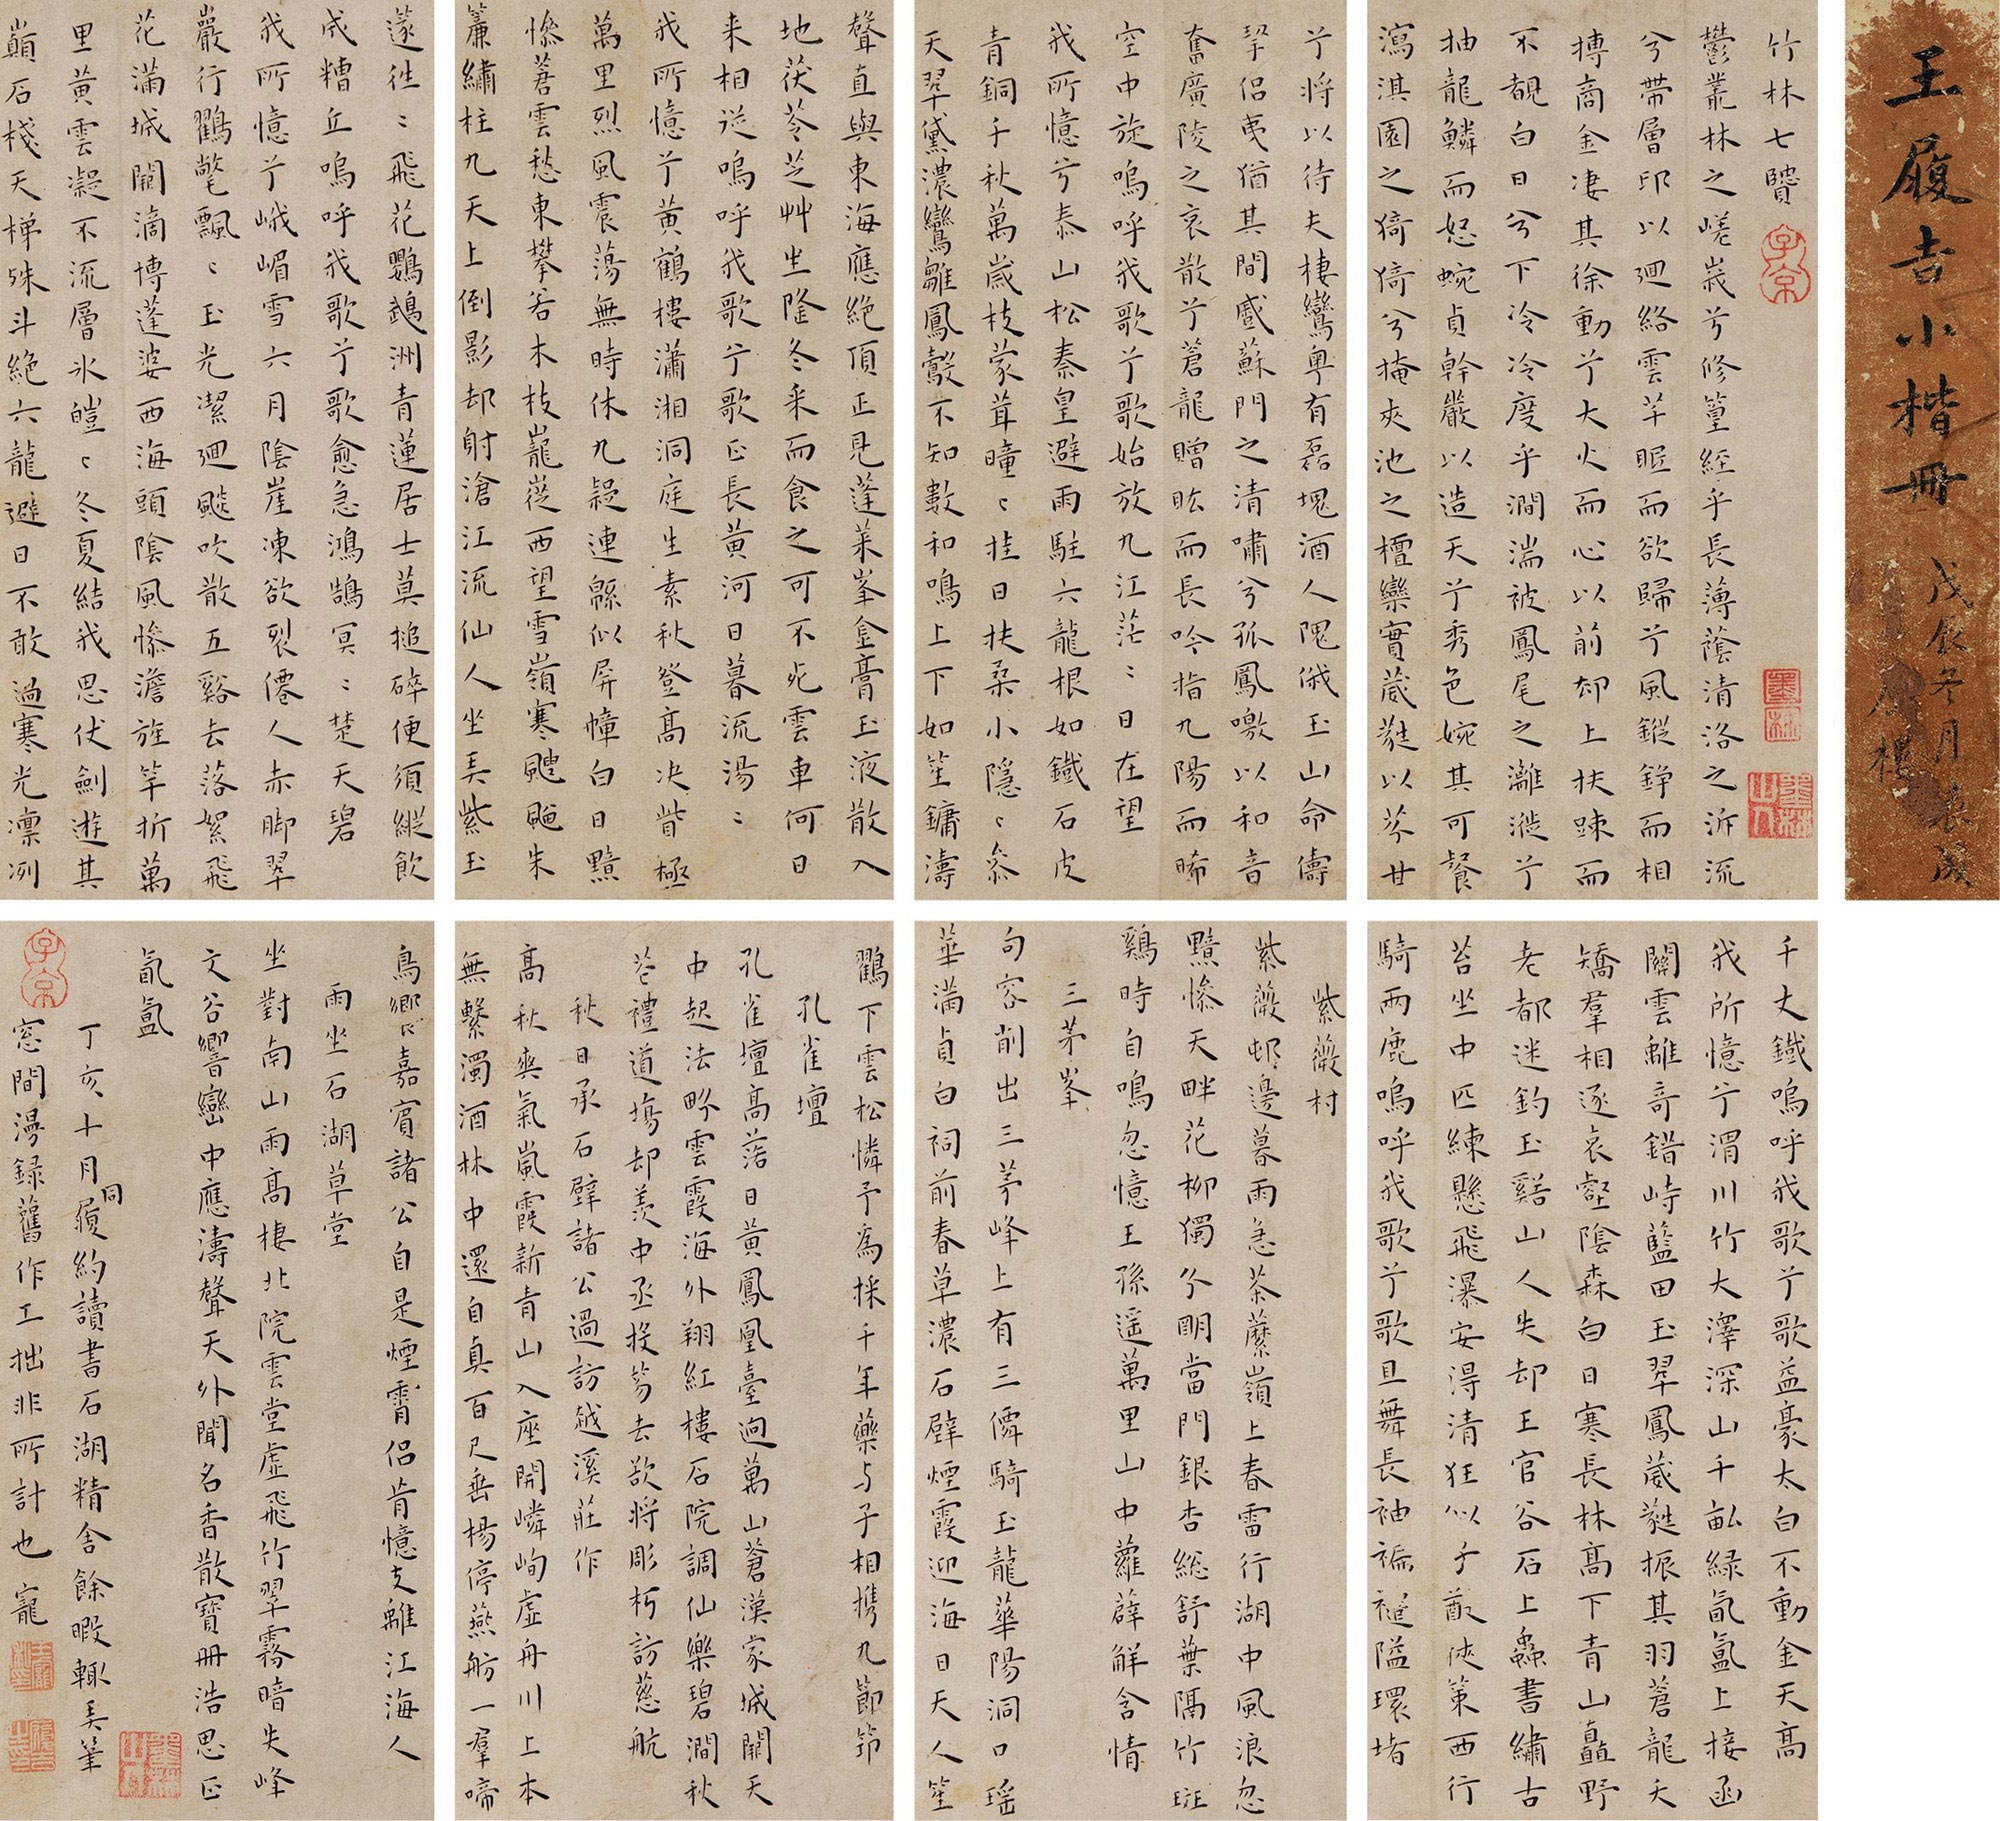 王履吉小楷冊
戊辰冬月裝成
竹林七賢
鬱叢林之嵯峩兮修篁經乎長薄蔭清洛之泝流
兮帶層邙以迴絡雲芊眠而欲歸兮風鏦錚而相
搏商金淒其徐動兮大火而心以前却上扶踈而
不覩白日兮下冷冷度乎澗湍被鳳尾之灕漇兮
抽龍鱗而怒蜿貞幹嚴以造天兮秀色婉其可餐
瀉淇園之猗猗兮掩夾池之檀欒實葳蕤以芬甘
兮將以待夫棲鸞粵有磊塊酒人隗俄玉山命儔
挈侶夷猶其間感蘇門之清嘯兮孤鳳噭以和音
奮廣陵之哀散兮蒼龍贈眩而長吟指九陽而晞
空中旋嗚呼我歌兮歌始放九江茫〻日在望
我所憶兮泰山松秦皇避雨駐六龍根如鐵石皮
青銅千秋萬歲枝蒙茸曈〻挂日扶桑小隱〻叅
天翠黛濃鸞雛鳳鷇不知數和鳴上下如笙鏞濤
聲直與東海應絕頂正見蓬萊峯金膏玉液散入
地茯苓芝艸坐隆冬采而食之可不死雲車何日
来相從嗚呼我歌兮歌正長黃河日暮流湯〻
我所憶兮黃鶴樓瀟湘洞庭生素秋登高決眥極
萬里烈風震蕩無時休九疑連緜似屏幛白日黯
慘蒼雲愁東攀若木枝巃嵸西望雪嶺寒颼飀朱
簾繡柱九天上倒影却射滄江流仙人坐弄紫玉
篴徃〻飛花鸚鵡洲青蓮居士莫搥碎便須縱飲
成糟丘嗚呼我歌兮歌愈急鴻鵠冥〻楚天碧
我所憶兮峨嵋雪六月陰崖凍欲裂僊人赤脚翠
巖行鸛氅飄〻玉光潔迴飈吹散五谿去落絮飛
花滿城闕滴博蓬婆西海頭陰風慘澹旌竿折萬
里黃雲凝不流層氷皚〻冬夏結我思伏劍遊其
巔石棧天梯殊斗絕六龍避日不敢過寒光凛冽
千丈鐵嗚呼我歌兮歌益豪太白不動金天高
我所憶兮渭川竹大澤深山千畝綠氤氳上接函
關雲離奇錯峙藍田玉翠鳳葳蕤振其羽蒼龍夭
矯羣相逐哀壑陰森白日寒長林高下青山矗野
老都迷釣玉谿山人失却王官谷石上蟲書繡古
苔坐中匹練懸飛瀑安得清狂似子猷侠策西行
騎兩鹿嗚呼我歌兮歌且舞長袖褊褼隘環堵
紫薇村
紫薇邨邊暮雨急茶蘼嶺上春雷行湖中風浪忽
黯慘天畔花柳獨分明當門銀杏總舒葉隔竹斑
鷄時自鳴忽憶王孫遥萬里山中蘿薜解含情
三茅峯
句容削出三茅峰上有三僊騎玉龍華陽洞口瑶
華滿貞白祠前春草濃石壁煙霞迎海日天人笙
鸛下雲松憐予為採千年藥与子相携九節笻
孔雀壇
孔雀壇高落日黃鳳凰臺迥萬山蒼漢家城闕天
中起法畍雲霞海外翔紅樓石院調仙樂碧澗秋
芲禮道塲却羨中丞投笏去欲将彫朽訪慈航
秋日承石壁諸公過訪越溪莊作
高秋爽氣嵐霞新青山入座開嶙峋虛舟川上本
無繫濁酒林中還自真百尺垂楊停燕舫一羣啼
鳥嚮嘉賓諸公自是煙霄侶肯憶支離江海人
雨坐石湖草堂
坐對南山雨高棲北院雲堂虛飛竹翠霧暗失峰
文谷響巒中應濤聲天外聞名香散寶冊浩思正
氤氳
丁亥十月同履約讀書石湖精舍餘暇輒弄筆
窓間漫録舊作工拙非所計也寵